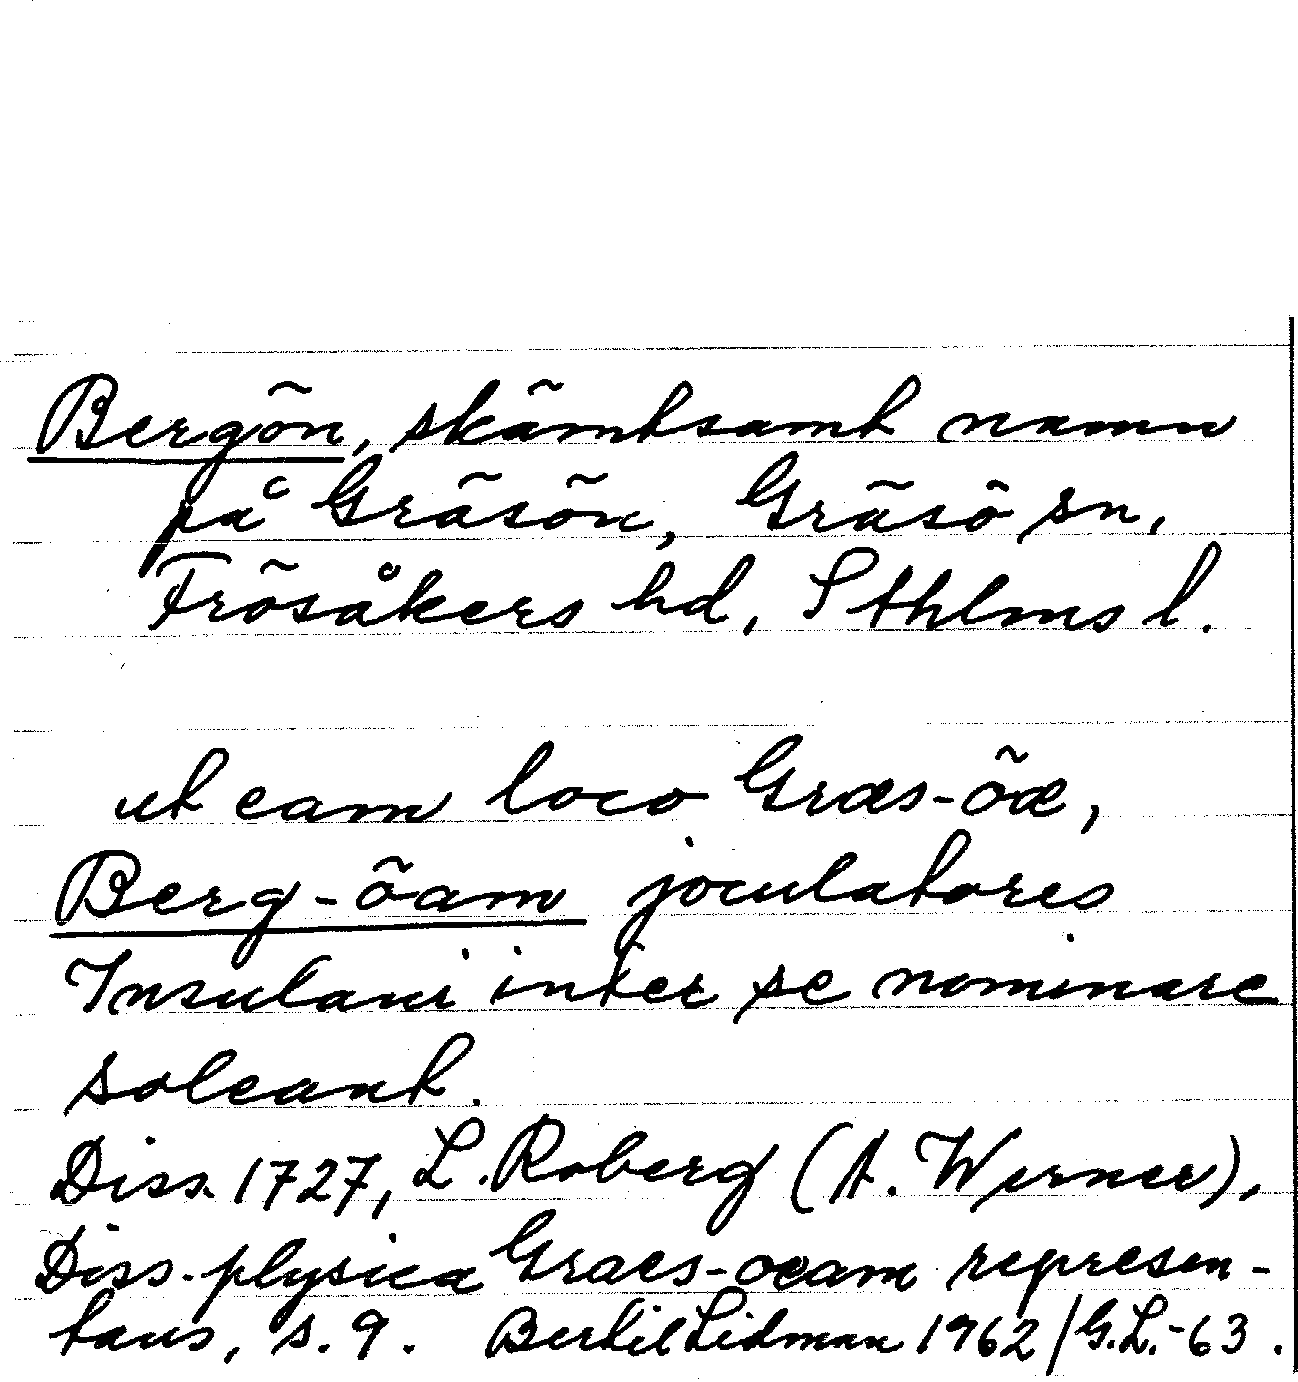 Bergön, skämtsamt namn
på Gräsön, Gräsö sn,
Frösåkers hd, Sthlms l.
ut eam loco Græs-öæ,
Berg-öam joculatores
Insulani inter se nominare
soleant.
Diss. 1727, L. Roberg (A. Werner),
Diss. physica Graes-oeam represen-
tans, s. 9. Bertil Lidman 1962/G.L.-63.